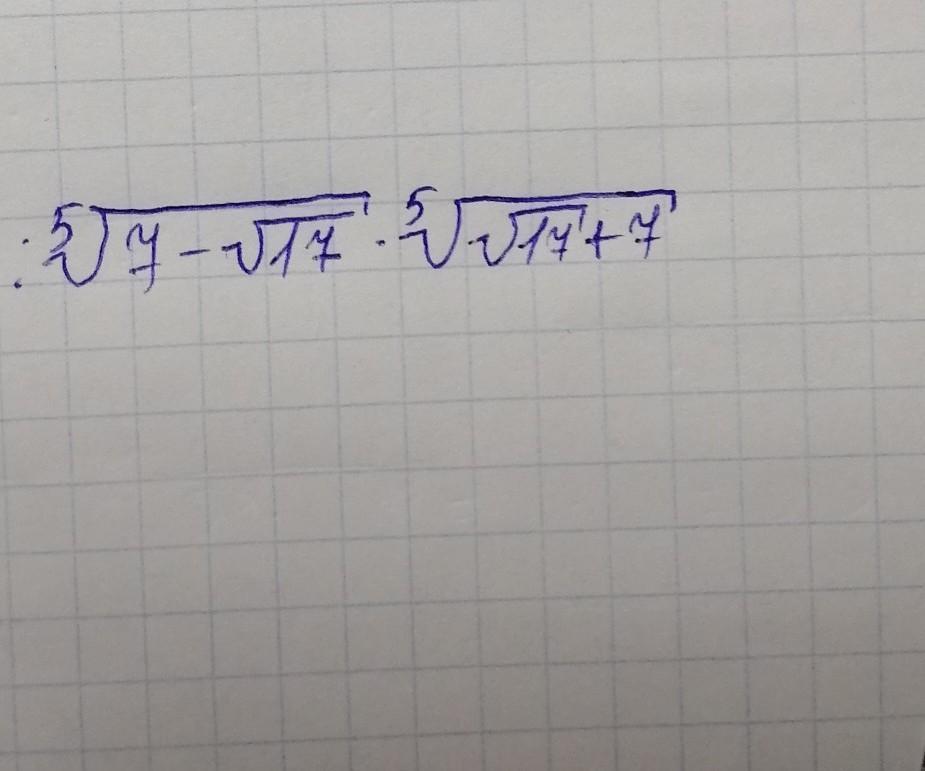 : ⁵√(7 - √17) · ⁵√(√17 + 7)